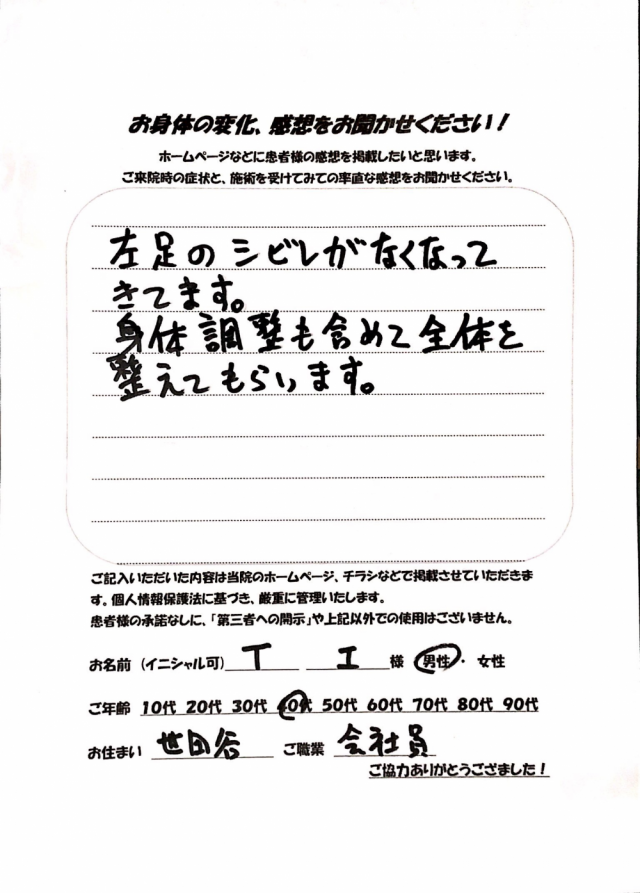 お身体の変化、感想をお聞かせください！
ホームページなどに患者様の感想を掲載したいと思います。
ご来院時の症状と、施術を受けてみての率直な感想をお聞かせください。
左足のシビレがなくなって
きてます。
身体調整も含めて全体を
整えてもらいます。
ご記入いただいた内容は当院のホームページ、チラシなどで掲載させていただきま
す。個人情報保護法に基づき、厳重に管理いたします。
患者様の承諾なしに、「第三者への開示」や上記以外での使用はございません。
お名前（イニシャル可） T I 様 男性・女性
ご年齢 10代 20代 30代 40代 50代 60代 70代 80代 90代
お住まい 世田谷 ご職業 会社員
ご協力ありがとうござました！